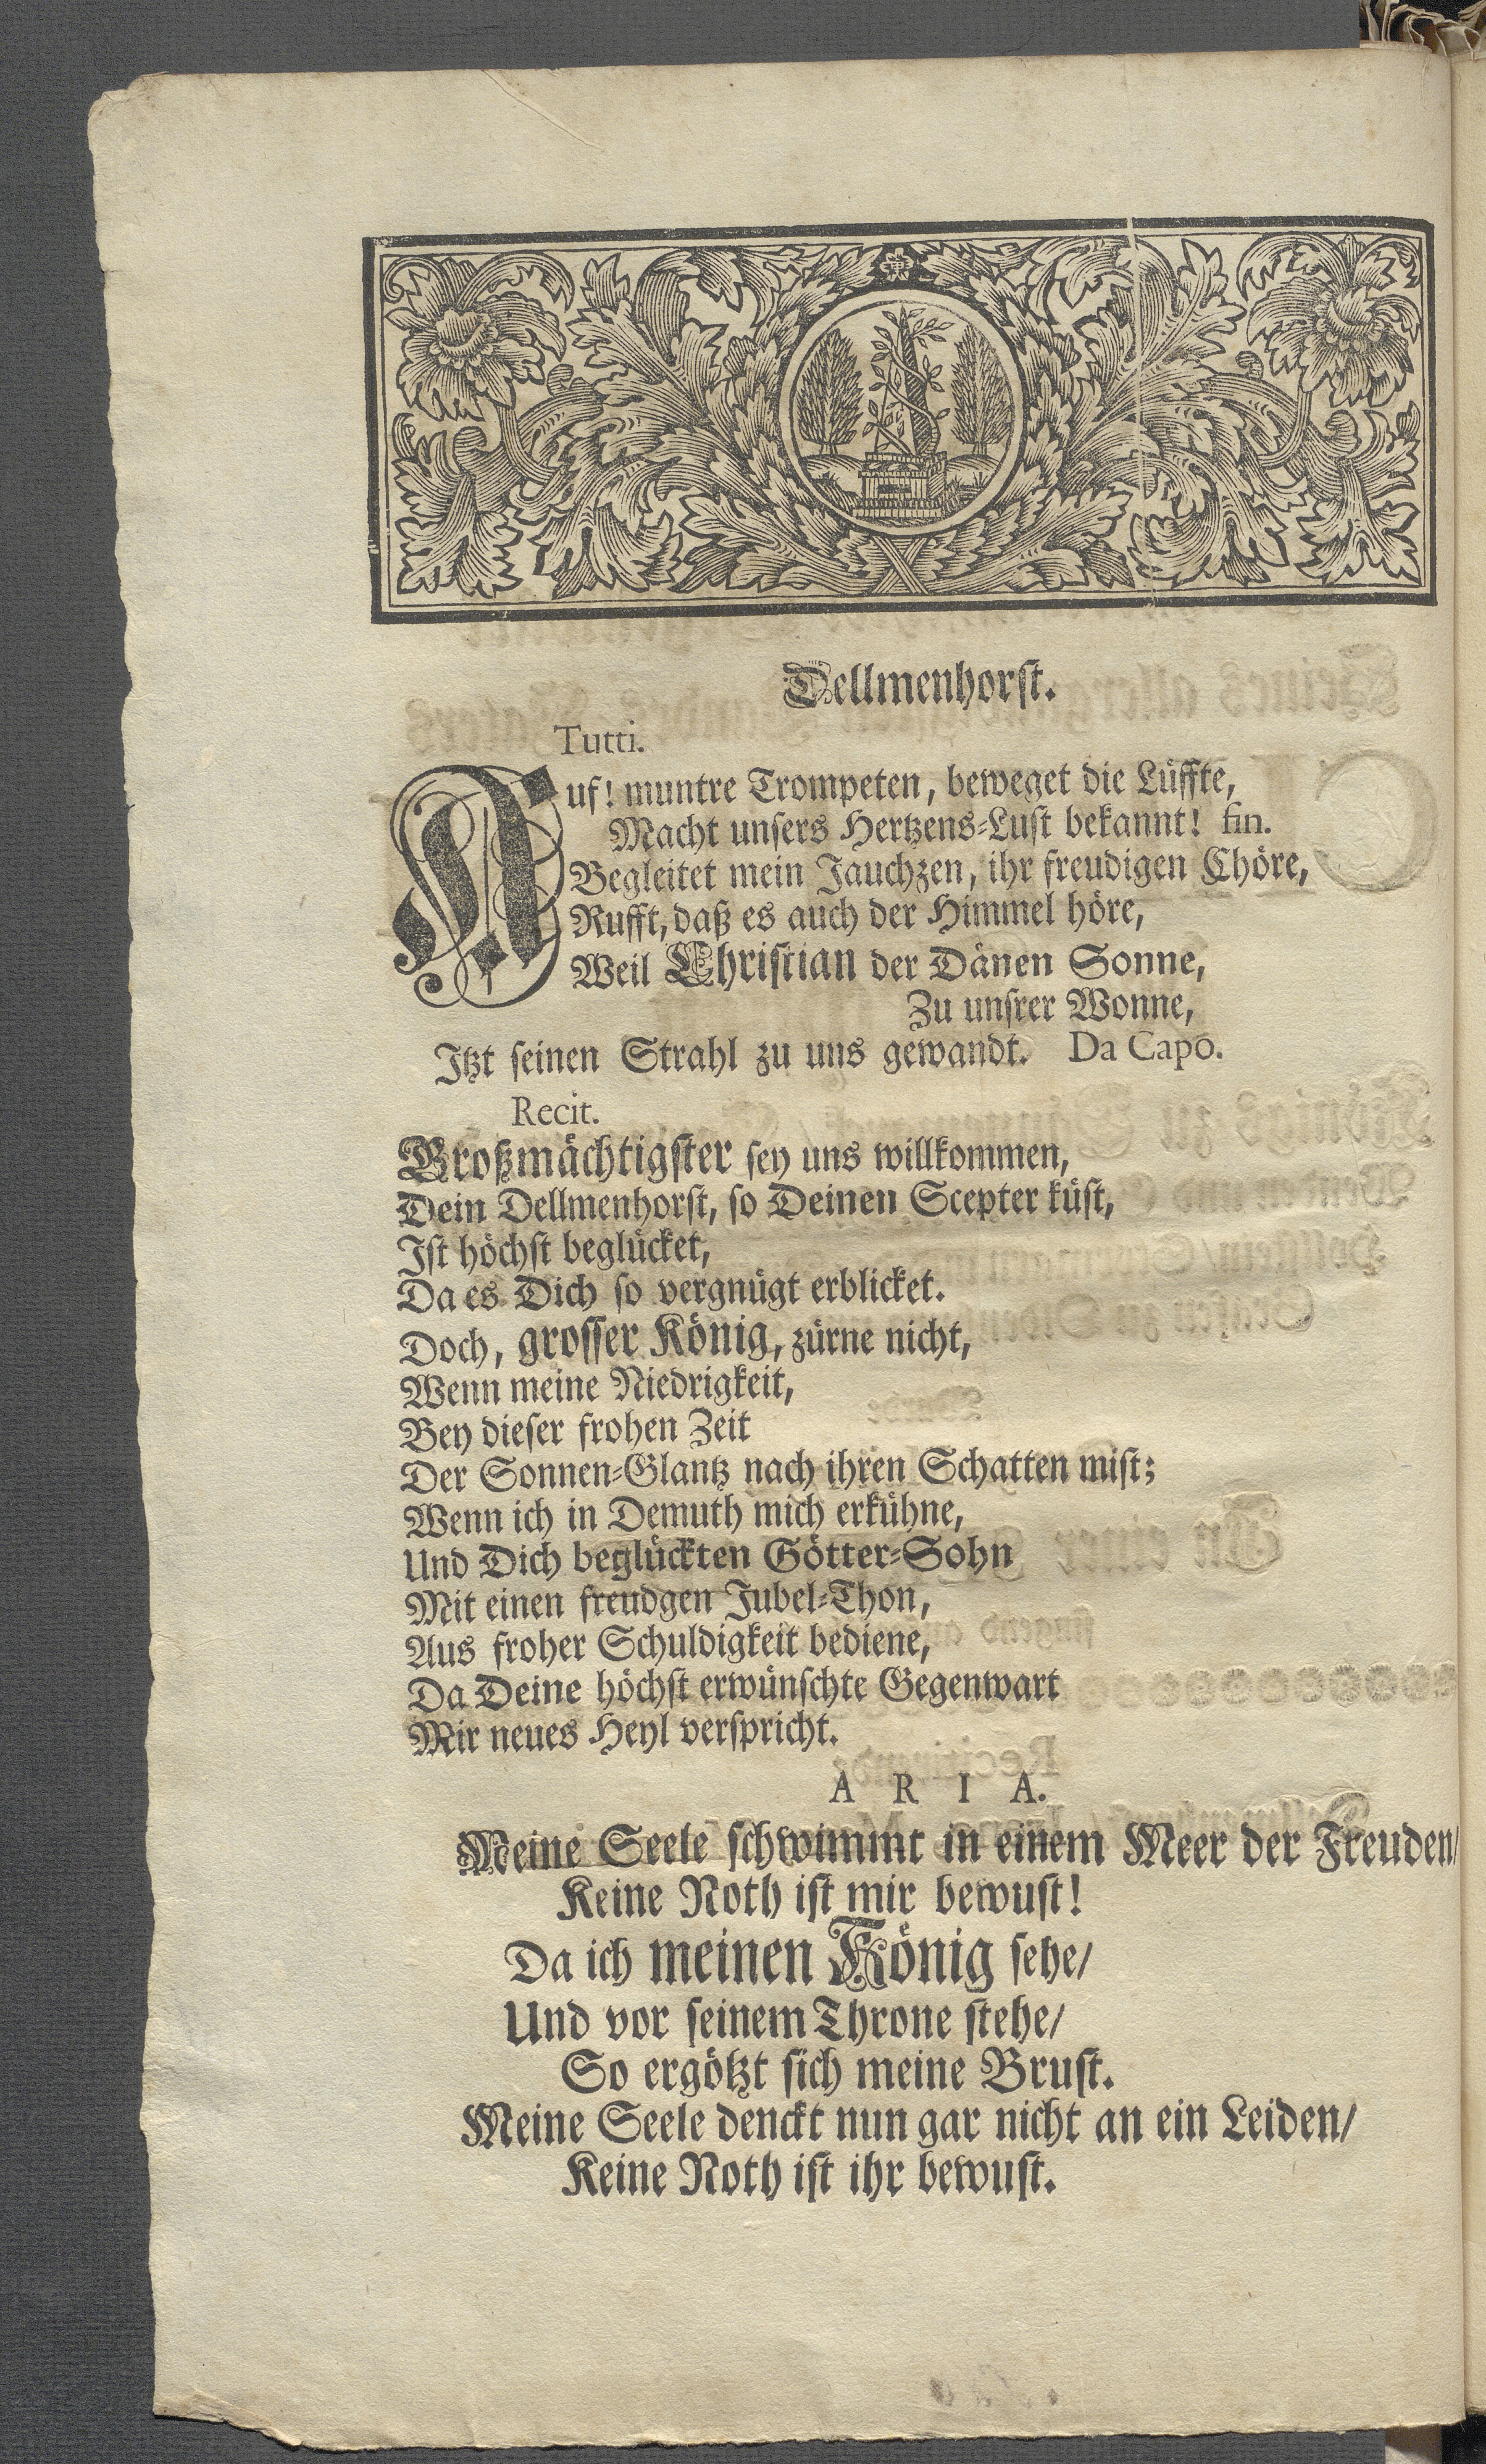 Dellmenhorst.
Tutti.
Auf! muntre Trompeten, beweget die Lüffte,
Macht unsers Hertzens-Lust bekannt! fin.
Begleitet mein Jauchzen, ihr freudigen Chöre,
Rufft, daß es auch der Himmel höre,
Weil Christian der Dänen Sonne,
Zu unsrer Wonne,
Itzt seinen Strahl zu uns gewandt. Da Capo.
Recit.
Großmächtigster sey uns willkommen,
Dein Dellmenhorst, so Deinen Scepter küst,
Ist höchst beglücket,
Da es Dich so vergnügt erblicket.
Doch, grosser König, zürne nicht,
Wenn meine Niedrigkeit,
Bey dieser frohen Zeit
Der Sonnen-Glantz nach ihren Schatten mist;
Wenn ich in Demuth mich erkühne,
Und Dich beglückten Götter-Sohn
Mit einen freudgen Jubel-Thon,
Aus froher Schuldigkeit bediene,
Da Deine höchst erwünschte Gegenwart
Mir neues Heyl verspricht.
ARIA.
Meine Seele schwimmt in einem Meer der Freuden/
Keine Noth ist mir bewust!
Da ich meinen König sehe/
Und vor seinem Throne stehe/
So ergötzt sich meine Brust.
Meine Seele denckt nun gar nicht an ein Leiden/
Keine Noth ist ihr bewust.